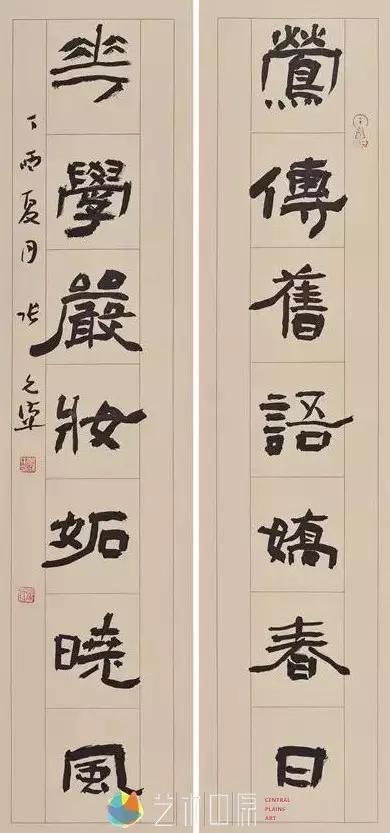 鶯傳舊語嬌春日
花學嚴妝妬曉風
丁酉夏月 张
艺术中原
CENTRAL
PLAINS
ART